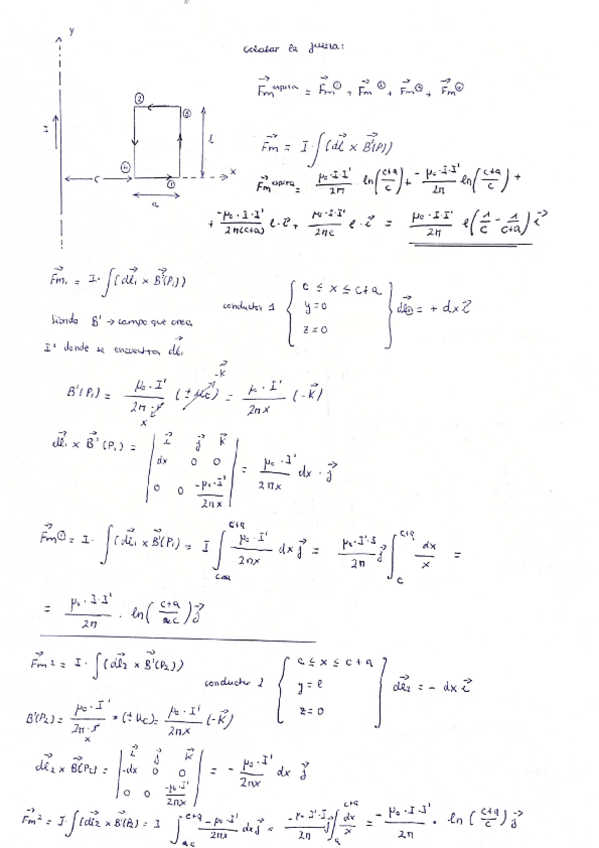 y
calcular la fuerza:
F⃗m espira = F⃗m① + F⃗m② + F⃗m③ + F⃗m④
② ③ I l
F⃗m = I · ∫(dl⃗ × B⃗'(P))
④ ① x
c a
F⃗m espira = μ₀·I·I'/2π · ln((c+a)/c) + -μ₀·I·I'/2π ln((c+a)/c) +
+ -μ₀·I·I'/2π(c+a) l·i⃗ + μ₀·I·I'/2πc l·i⃗ = μ₀·I·I'/2π l(1/c - 1/(c+a)) i⃗
F⃗m₁ = I · ∫(dl⃗₁ × B⃗'(P₁))
conductor 1 { c ≤ x ≤ c+a
y=0
z=0 } dl⃗₁ = + dx i⃗
Siendo B' → campo que crea
I' donde se encuentra dl⃗₁
B'(P₁) = μ₀·I'/2π·r (± u⃗c) = μ·I'/2πx (-k⃗)
x -k⃗
dl⃗₁ × B⃗'(P₁) = | i⃗ j⃗ k⃗
dx 0 0
0 0 -μ₀·I'/2πx | = μ₀·I'/2πx dx · j⃗
F⃗m① = I · ∫(dl⃗₁ × B⃗'(P₁)) = I ∫ c+a μ₀·I'/2πx dx j⃗ = μ₀·I'·I/2π j⃗ ∫ c c+a dx/x =
= μ₀·I·I'/2π · ln((c+a)/c) j⃗
F⃗m² = I · ∫(dl⃗₂ × B⃗'(P₂))
conductor 2 { c ≤ x ≤ c+a
y=l
z=0 } dl⃗₂ = - dx i⃗
B'(P₂) = μ₀·I'/2π·r · (± uc) = μ₀·I'/2πx (-k⃗)
x
dl⃗₂ × B⃗(P₂) = | i⃗ j⃗ k⃗
-dx 0 0
0 0 -μ₀·I'/2πx | = - μ₀·I'/2πx dx j⃗
F⃗m² = I · ∫(dl⃗₂ × B⃗'(P₂)) = I ∫ c c+a -μ₀·I'/2πx dx j⃗ = -μ₀·I'·I/2π j⃗ ∫ c+a dx/x = -μ₀·I·I'/2π · ln((c+a)/c) j⃗